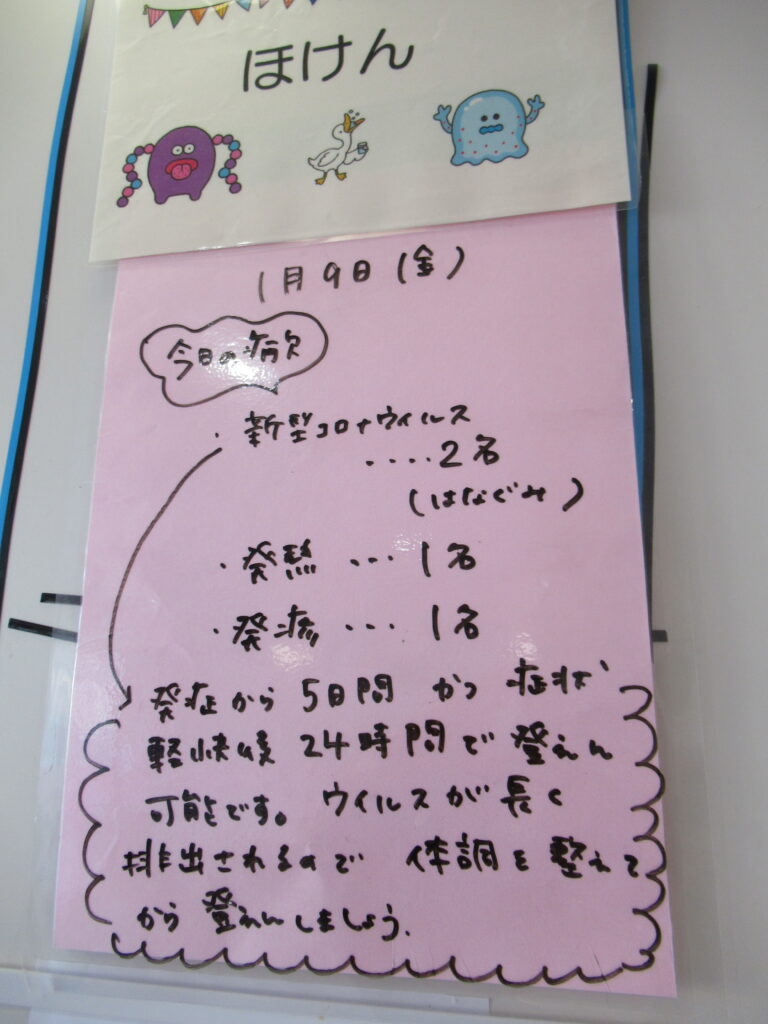 ほけん
1月9日(金)
今日の病欠
・新型コロナウイルス
....2名
(はなぐみ)
・発熱 ... 1名
・発疹 ... 1名
発症から 5日間 かつ 症状
軽快後 24時間で登えん
可能です。 ウイルスが長く
排出されるので 体調を整えて
から登えんしましょう.